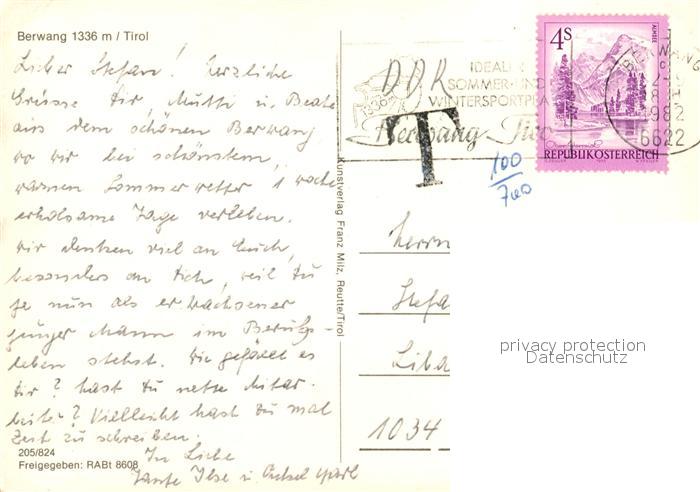 Berwang 1336 m / Tirol
Lieber Stefan! Herzliche
Grüsse Dir, Mutti u. Beate
aus dem schönen Berwang
wo wir bei schönstem,
warmen Sommerwetter 1 Woche
erholsame Tage verleben.
Wir denken viel an Euch,
besonders an Dich, weil Du
ja nun als erwachsener
junger Mann im Berufs-
leben stehst. Wie gefällt es
Dir? Hast Du nette Mitar-
beiter? Vielleicht hast Du mal
Zeit zu schreiben.
In Liebe
Tante Ilse u. Onkel
205/824
Freigegeben: RABt 8608
Kunstverlag Franz Milz, Reutte/Tirol
DDR
IDEALER
SOMMER- UND
WINTERSPORTPLA
1336m
Berwang Tiro
T
100
700
4S
ALMSEE
REPUBLIK ÖSTERREICH
RWANG
982
6622
Herrn
Stefa
Liba
1034
privacy protection
Datenschutz